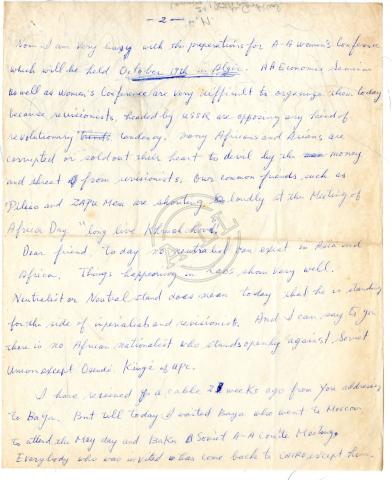 - 2 -
Now I am very busy with the preparations for A-A Women's Conference
which will be held October 19th in Algir. AA Economic Seminar
as well as Women's Conference are very difficult to organize them today
because revisionists headed by USSR are opposing any kind of
revolutionary tendency. Many Africans and Asians are
corrupted or sold out their heart to devil by the money
and threat from revisionists. Our common friends such as
Pilcao and ZAPU Men are shouting loudly at the Meeting of
Africa Day "long live Khruschhov."
Dear friend, today no neutralist can exist in Asia and
Africa. Things happening in Laos show very well.
Neutralist or Neutral stand does mean today that he is standing
for the side of imperialists and revisionists. And I can say to you
there is no African nationalist who stands openly against Soviet
Union except Osende, Kinge of UPC.
I have received a cable 2 weeks ago from you addressed
to Baya. But till today I waited Baya who went to Moscow
to attend the May day and Baku Soviet A-A Comite Meeting.
Everybody who was invited has come back to Cairo except him.